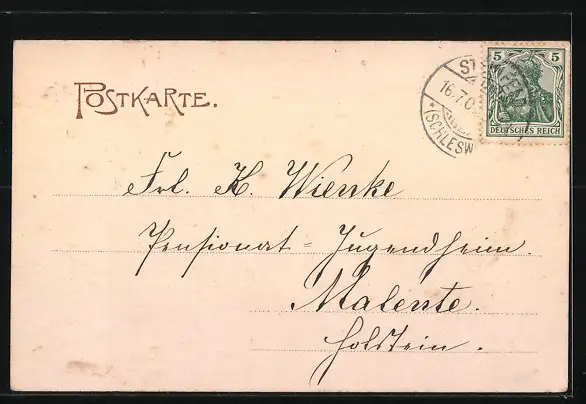 POSTKARTE.
5 5
DEUTSCHES REICH
16.7.0
*(SCHLESW
Frl. K. Wienke
Pensionat = Jugendheim.
Malente.
Holstein.